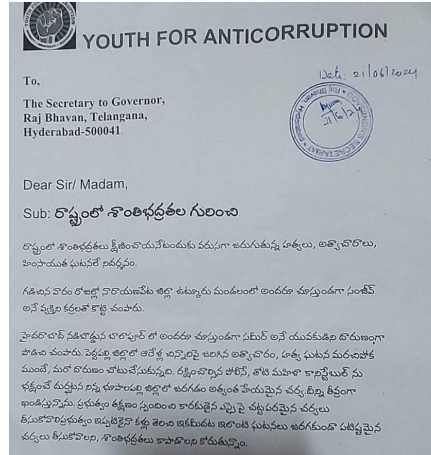 YOUTH FOR ANTICORRUPTION
Date 21/06/2024
To,
The Secretary to Governor,
Raj Bhavan, Telangana,
Hyderabad-500041.
Dear Sir/ Madam,
Sub: రాష్ట్రంలో శాంతిభద్రతల గురించి
రాష్ట్రంలో శాంతిభద్రతలు క్షీణించాయనేటందుకు వరుసగా జరుగుతున్న హత్యలు, అత్యాచారాలు,
హింసాయుత ఘటనలే నిదర్శనం.
గడిచిన వారం రోజుల్లో నారాయణపేట జిల్లా ఉట్కూరు మండలంలో అందరూ చూస్తుండగా సంజీవ్
అనే వ్యక్తిని కర్రలతో కొట్టి చంపారు.
హైదరాబాద్ నడిబొడ్డున బాలాపూర్ లో అందరూ చూస్తుండగా సమీర్ అనే యువకుడిని దారుణంగా
పొడిచి చంపారు. పెద్దపల్లి జిల్లాలో ఆరేళ్ల చిన్నారిపై జరిగిన అత్యాచారం, హత్య ఘటన మరచిపోక
ముందే, మరో దారుణం చోటుచేసుకున్నది. రక్షించాల్సిన పోలీసే, తోటి మహిళా కానిస్టేబుల్ ను
భక్షంచే దుర్ఘటన నిన్న భూపాలపల్లి జిల్లాలో జరగడం అత్యంత హేయమైన చర్య.దీన్ని తీవ్రంగా
ఖండిస్తున్నాను. ప్రభుత్వం తక్షణం స్పందించి కారకుడైన ఎస్సై పై చట్టపరమైన చర్యలు
తీసుకోవాలిప్రభుత్వం ఇప్పటికైనా కళ్లు తెరిచి ఇకమీదట ఇలాంటి ఘటనలు జరగకుండా పటిష్టమైన
చర్యలు తీసుకోవాలని, శాంతిభద్రతలు కాపాడాలని కోరుతున్నాం.